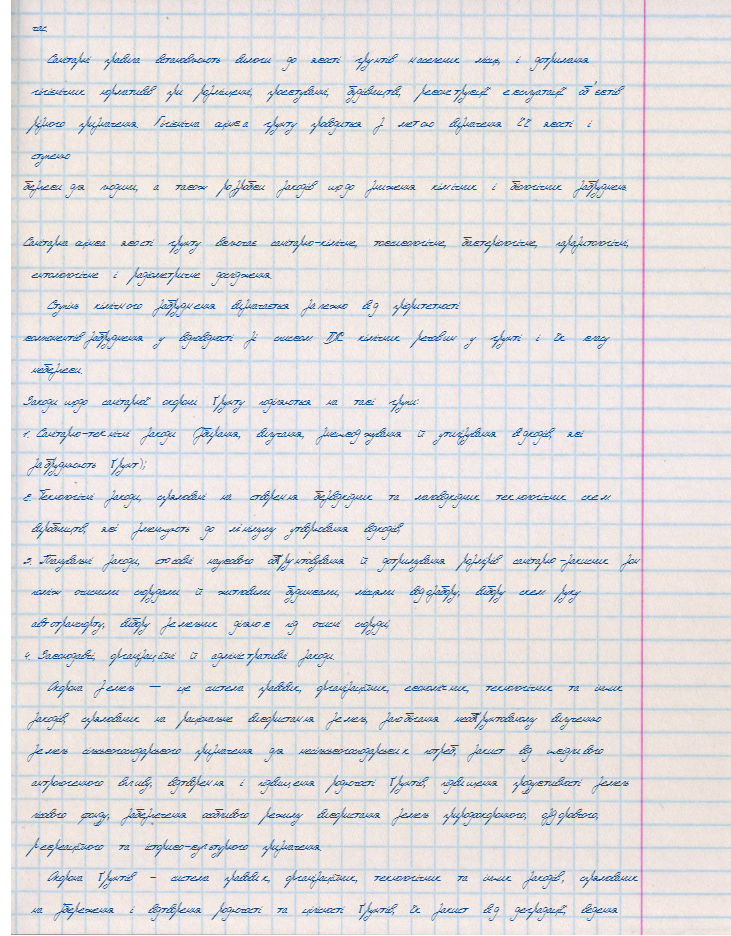 час.
Санітарні правила встановлюють вимоги до якості ґрунтів населених місць і дотримання
гігієнічних нормативів при розміщенні, проектуванні, будівництві, реконструкції експлуатації об'єктів
різного призначення. Гігієнічна оцінка ґрунту проводиться з метою визначення її якості і
ступеню
безпеки для людини, а також розробки заходів щодо зниження хімічних і біологічних забруднень.
Санітарна оцінка якості ґрунту включає санітарно-хімічне, токсикологічне, бактеріологічне, паразитологічні,
ентомологічне і радіометричне дослідження.
Ступінь хімічного забруднення визначається залежно від пріоритетності
компонентів забруднення у відповідності зі списком ГДК хімічних речовин у ґрунті і їх класу
небезпеки.
Заходи щодо санітарної охорони ґрунту поділяються на такі групи:
1. Санітарно-технічні заходи (збирання, вилучання, знешкоджування й утилізування відходів, які
забруднюють ґрунт);
2. Технологічні заходи, спрямовані на створення безвідхідних та маловідхідних технологічних схем
виробництв, які зменшують до мінімуму утворювання відходів;
3. Планувальні заходи, стосовні наукового обґрунтовування й дотримування розмірів санітарно-захисних зон
поміж очисними спорудами й житловими будинками, місцями водозабору, вибору схем руху
автотранспорту, вибору земельних ділянок під очисні споруди;
4. Законодавчі, організаційні й адміністративні заходи.
Охорона земель — це система правових, організаційних, економічних, технологічних та інших
заходів, спрямованих на раціональне використання земель, запобігання необґрунтованому вилученню
земель сільськогосподарського призначення для несільськогосподарських потреб, захист від шкідливого
антропогенного впливу, відтворення і підвищення родючості ґрунтів, підвищення продуктивності земель
лісового фонду, забезпечення особливого режиму використання земель природоохоронного, оздоровчого,
рекреаційного та історико-культурного призначення.
Охорона ґрунтів - система правових, організаційних, технологічних та інших заходів, спрямованих
на збереження і відтворення родючості та цілісності ґрунтів, їх захист від деградації, ведення